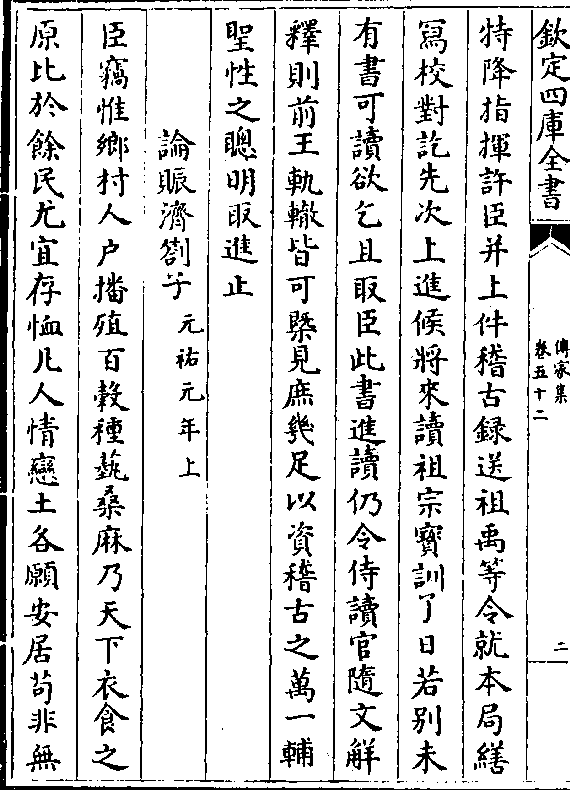 欽定四庫全書
傳家集
卷五十二
二
特降指揮許臣并上件稽古録送祖禹等令就本局繕
冩校對訖先次上進候將來讀祖宗寳訓了日若别未
有書可讀欲乞且取臣此書進讀仍令侍讀官隨文解
釋則前王軌轍皆可槩見庶幾足以資稽古之萬一輔
聖性之聰明取進止
論賑濟劄子元祐元年上
臣竊惟鄉村人户播殖百穀種蓺桑麻乃天下衣食之
原比於餘民尤宜存恤凡人情戀土各願安居苟非無